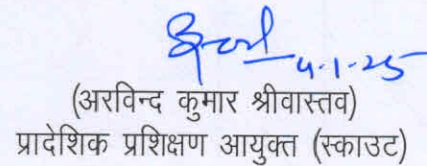 4-1-25
(अरविन्द कुमार श्रीवास्तव)
प्रादेशिक प्रशिक्षण आयुक्त (स्काउट)